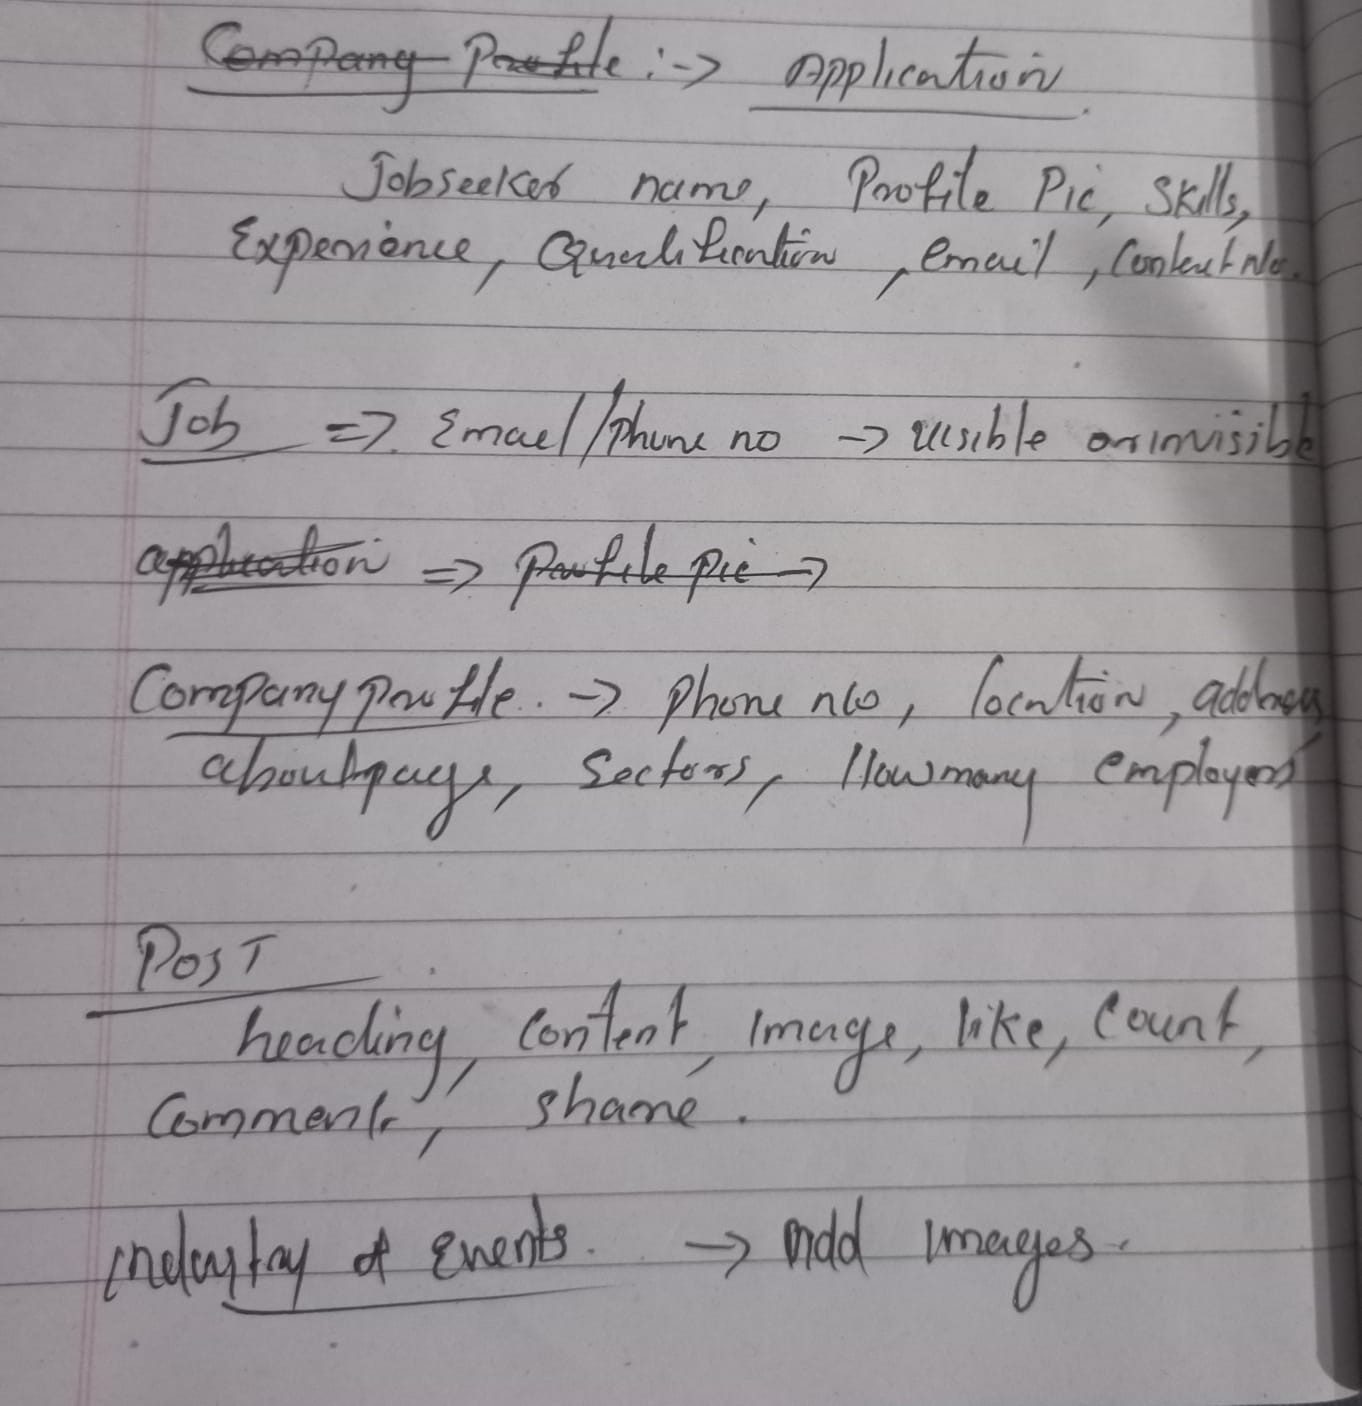 Company Profile :-> Application
Jobseeker name, Profile Pic, Skills,
Experience, Qualification, email, Contact No.
Job => Email/phone no -> visible or invisible
application => Profile pic ->
Company profile. -> phone no, location, address
aboutpage, Sectors, How many employers
POST
heading, content, image, like, count,
Comment, share.
industry & Events. -> Add images.